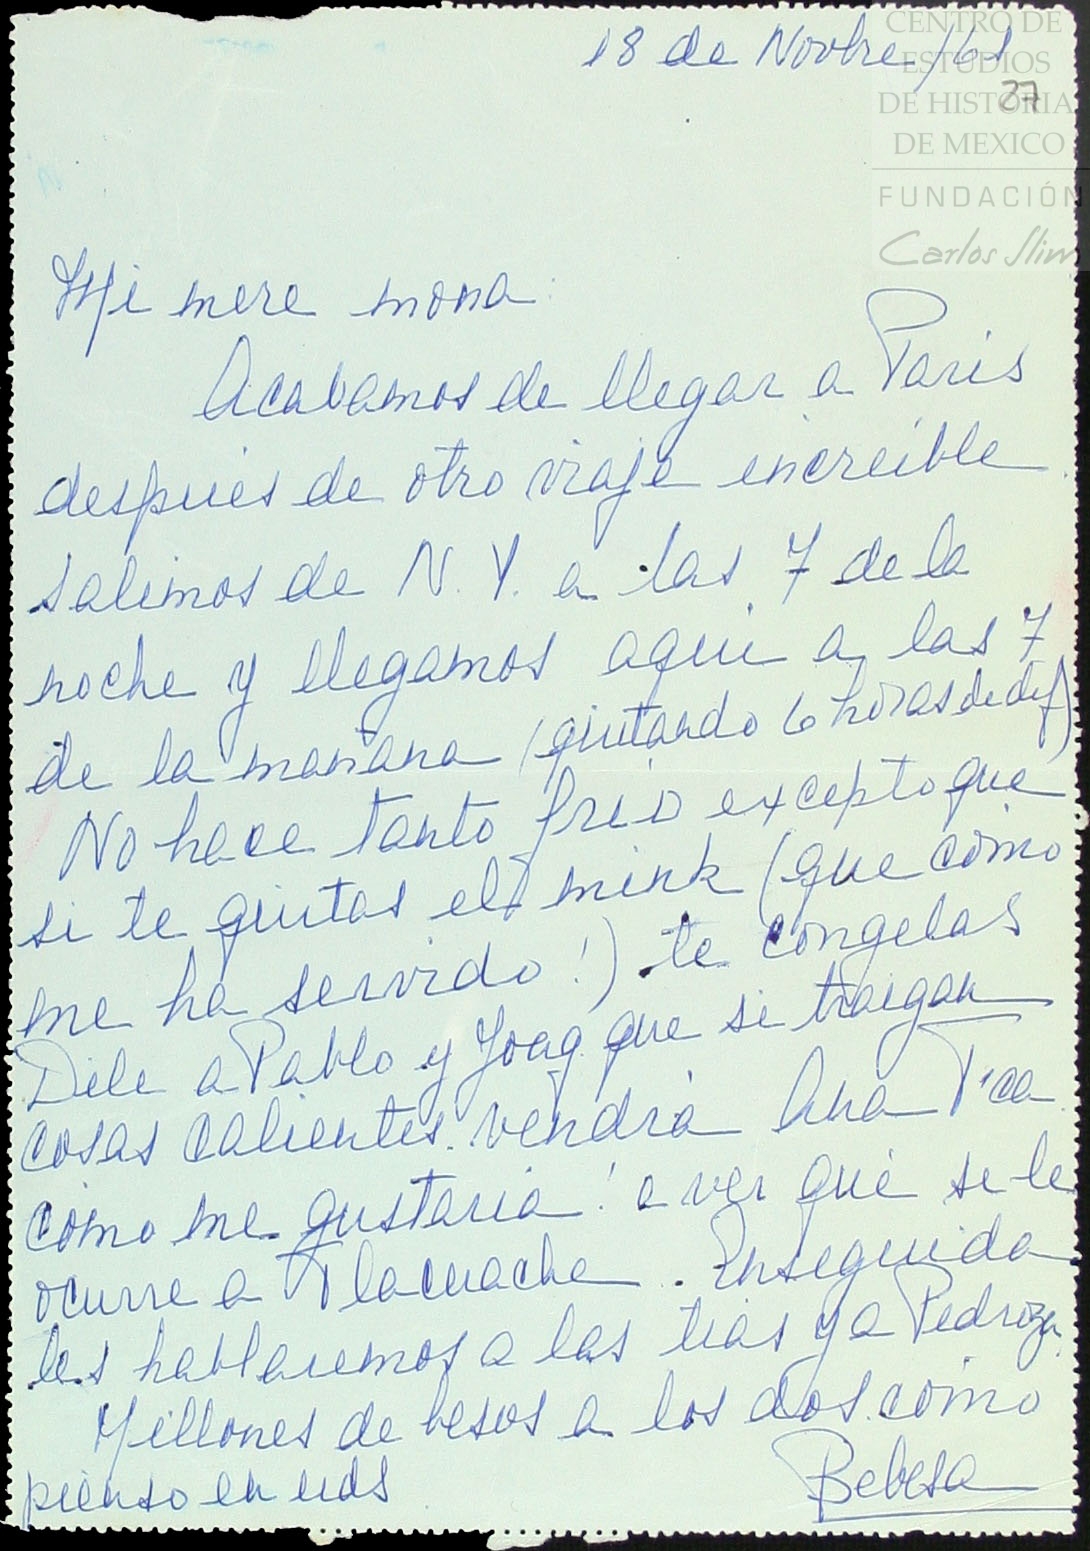 18 de Novbre/61
CENTRO DE
ESTUDIOS
DE HISTORIA
DE MEXICO
FUNDACIÓN
Carlos Slim
27
Mi mere mona:
Acabamos de llegar a Paris
despues de otro viaje increible.
Salimos de N.Y. a las 7 de la
noche y llegamos aqui a las 7
de la mañana (quitando 6 horas de dif)
No hace tanto frio excepto que
si te quitas el mink (que cómo
me ha servido!) te congelas
Dile a Pablo y Joaq. que si traigan
cosas calientes. vendrá Ana
como me gustaria! a ver qué se le
ocurre a Tlacuache. Enseguida
les hablaremos a las tias y a Pedroza.
Millones de besos a los dos. cómo
pienso en uds
Bebesa